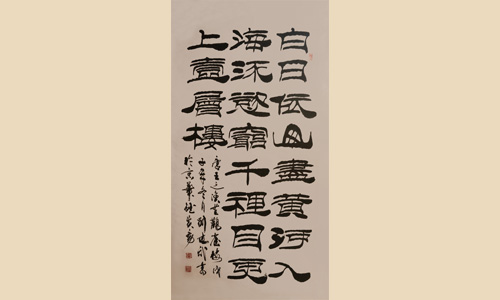 白日依山盡黃河入
海流慾窮千裡目更
上壹層樓
唐王之渙登鸛雀樓詩
年冬月書
於京華